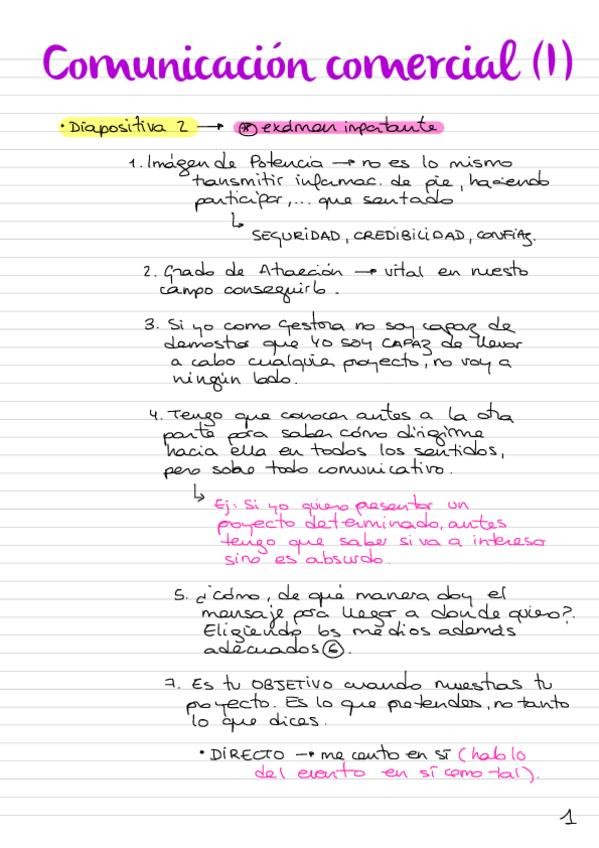 Comunicación comercial (1)
• Diapositiva 2 → * exámen inportante
1. Imágen de Potencia → no es lo mismo
transmitir informac. de pie, haciendo
participar, ... que sentado
↳ SEGURIDAD, CREDIBILIDAD, CONFIAZ.
2. Grado de Atracción → vital en nuestro
campo conseguirlo.
3. Si yo como Gestora no soy capaz de
demostrar que YO SOY CAPAZ de llevar
a cabo cualquier proyecto, no voy a
ningún lado.
4. Tengo que conocer antes a la otra
parte para saber cómo dirigirme
hacia ella en todos los sentidos,
pero sobre todo comunicativo.
↳ Ej: Si yo quiero presentar un
proyecto determinado, antes
tengo que saber si va a interesar
sino es absurdo.
5. ¿cómo, de qué manera doy el
mensaje para llegar a donde quiero?.
Eligiendo los medios además
adecuados ⑥.
7. Es tu OBJETIVO cuando muestras tu
proyecto. Es lo que pretendes, no tanto
lo que dices.
• DIRECTO → me centro en sí (hablo
del evento en sí como tal).
1